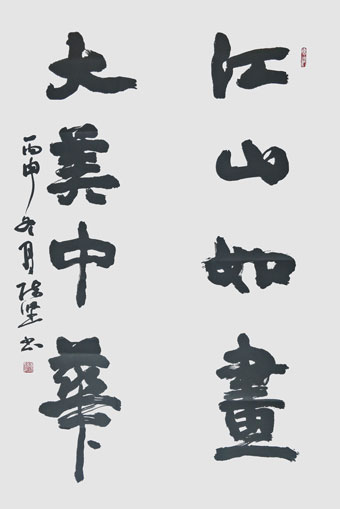 江山如畫
大美中華
丙申冬月陆坚书